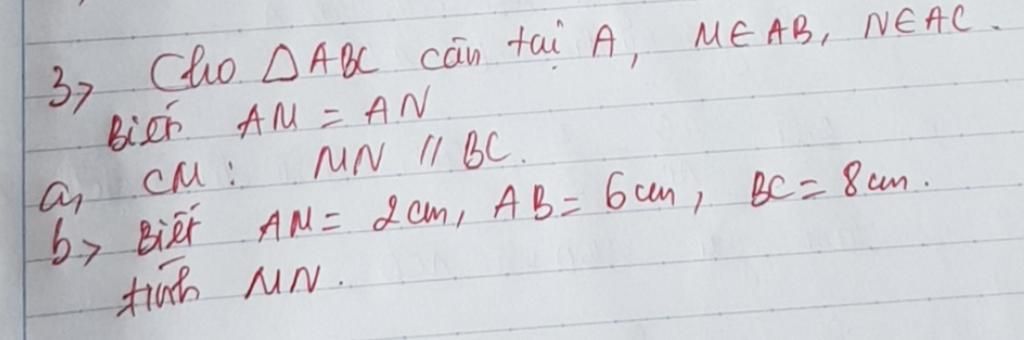 3> Cho △ABC cân tại A, M∈AB, N∈AC.
Biết AM = AN
a, CM: MN // BC.
b> Biết AM = 2cm, AB = 6cm, BC = 8cm.
tính MN.